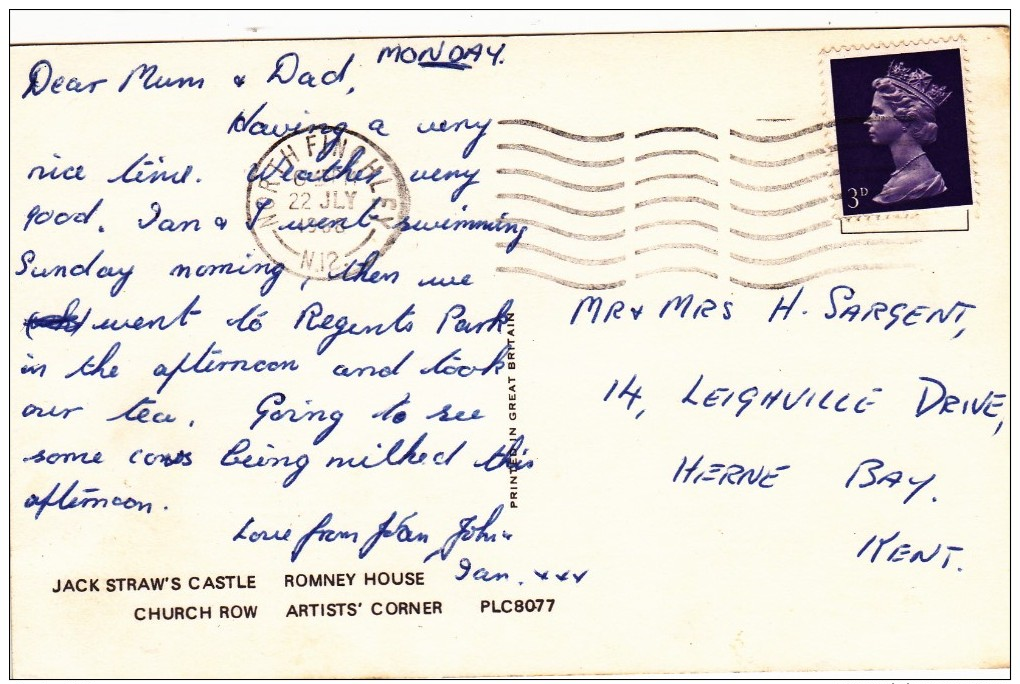 MONDAY.
Dear Mum & Dad,
Having a very
nice time. Weather very
good. Ian & I went swimming
Sunday morning, then we
went to Regents Park
in the afternoon and took
our tea. Going to see
some cows being milked this
afternoon.
Love from Joan, John
Ian. xxx
JACK STRAW'S CASTLE ROMNEY HOUSE
CHURCH ROW ARTISTS' CORNER PLC8077
PRINTED IN GREAT BRITAIN
NORTH FINCHLEY
22 JLY
N.12
3D
MR & MRS H. SARGENT,
14, LEIGHVILLE DRIVE,
HERNE BAY.
KENT.